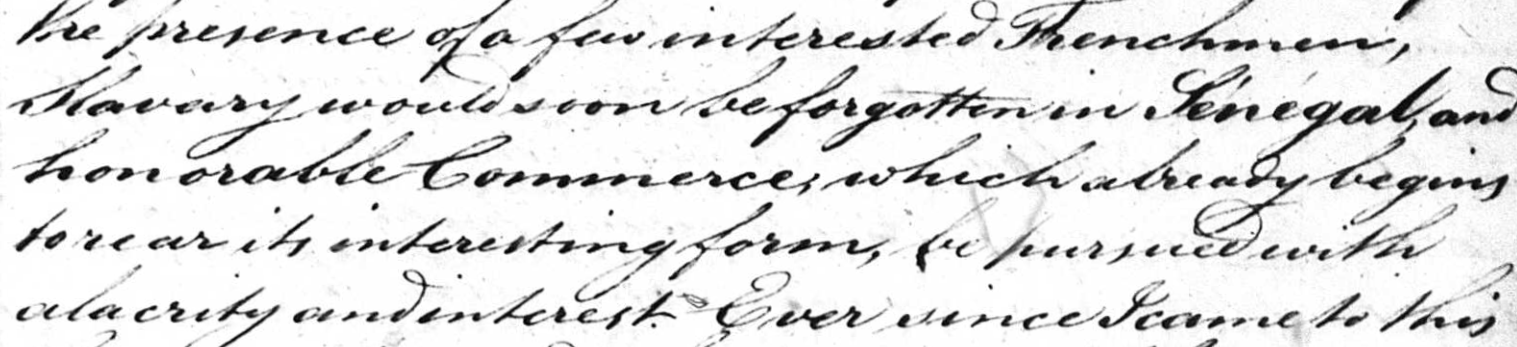 the presence of a few interested Frenchmen,
Slavary would soon be forgotten in Sénégal, and
honorable Commerce, which already begins
to rear its interesting form, be pursued with
alacrity and interest. Ever since I came to this